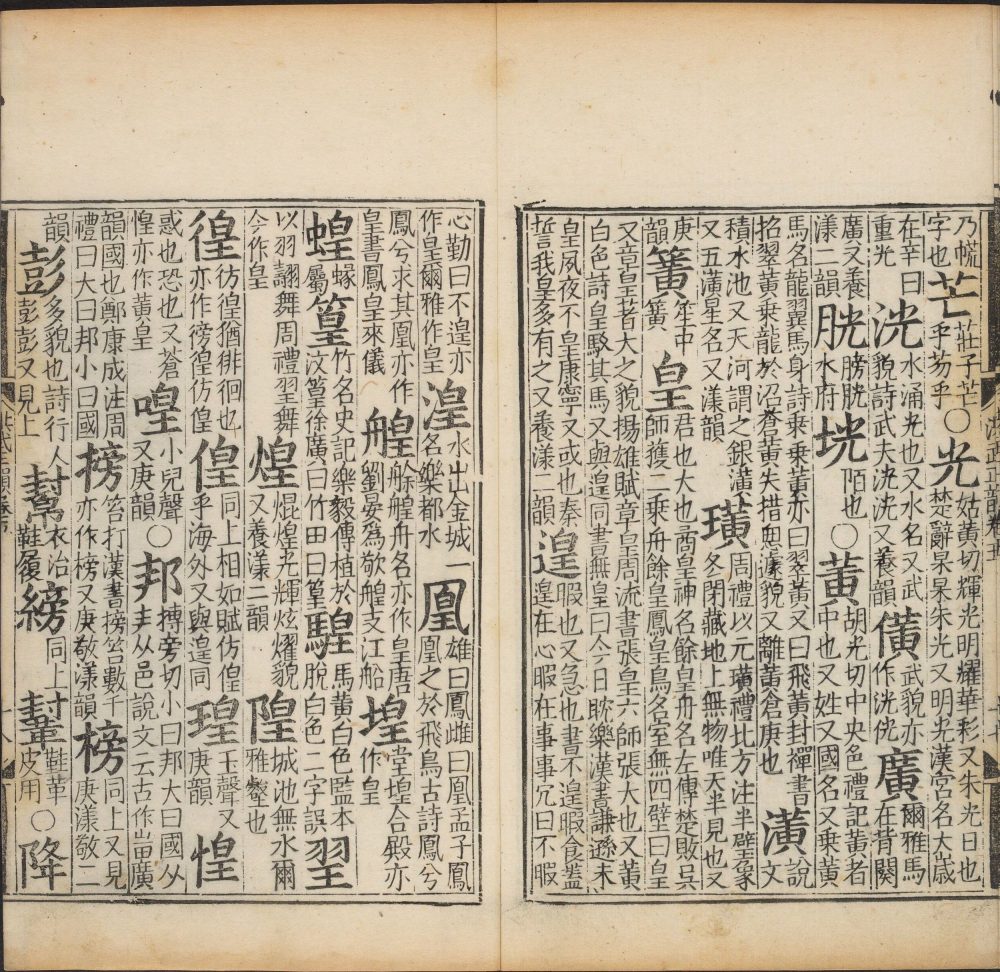 乃幌字也芒莊子芒乎芴乎○光姑黄切輝光明耀華彩又朱光日也楚辭杲杲朱光又明光漢宫名大歲
在辛曰重光洸水涌光也又水名又武貌詩武夫洸洸又養韻僙武貌亦作洸㑽廣爾雅馬在背闋
廣又養漾二韻胱膀胱水府垙陌也○黄胡光切中央色禮記黄者中也又姓又國名又乗黄
馬名龍翼馬身詩乗乗黄亦曰翠黄又曰飛黄封禪書招翠黄乗龍於沼蒼黄失措遽貌又離黄倉庚也潢說文
積水池又天河謂之銀潢又五潢星名又漾韻璜周禮以元璜禮北方注半璧象冬閉藏地上無物唯天半見也又
庚韻簧笙中簧皇君也大也啇皇神名餘皇舟名左傳楚敗吳師獲二乗舟餘皇鳳皇鳥名室無四壁曰皇
又章皇者大之貌揚雄賦章皇周流書張皇六師張大也又黄白色詩皇駁其馬又與遑同書無皇曰今日眈樂漢書謙遜未
皇夙夜不皇康寧又或也秦誓我皇多有之又養漾二韻遑暇也又急也書不遑暇食葢遑在心暇在事事冗曰不暇
洪武正韻卷五
心勤曰不遑亦作皇爾雅作皇湟水出金城一名樂都水凰雄曰鳳雌曰凰孟子鳳凰之於飛鳥古詩鳳兮
鳳兮求其凰亦作皇書鳳皇來儀艎艅艎舟名亦作皇唐劉晏爲歇艎支江船堭堂堭合殿亦作皇
蝗螽屬篁竹名史記樂毅傳植於汶篁徐廣曰竹田曰篁騜馬黄白色監本脫白色二字誤䍿
以羽翿舞周禮䍿舞今作皇煌焜煌光輝炫燿貌又養漾二韻隍城池無水爾雅壑也
徨彷徨猶徘徊也亦作徬徨仿偟偟同上相如賦仿偟乎海外又與遑同瑝玉聲又庚韻惶
惑也恐也又蒼惶亦作黄皇喤小兒聲又庚韻○邦搏旁切小曰邦大曰國从丰从邑說文云古作峀廣
韻國也鄭康成注周禮曰大曰邦小曰國搒笞打漢書搒笞數千亦作榜又庚敬漾韻榜同上又見庚漾敬二
韻彭多貌也詩行人彭彭又見上幫衣治鞋履縍同上鞤鞋革皮用○降